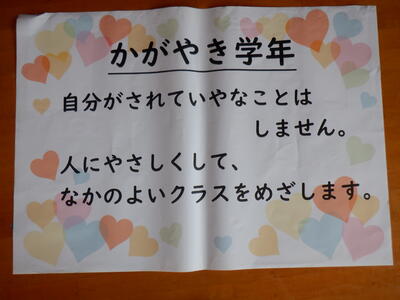 かがやき学年
自分がされていやなことは
しません。
人にやさしくして、
なかのよいクラスをめざします。